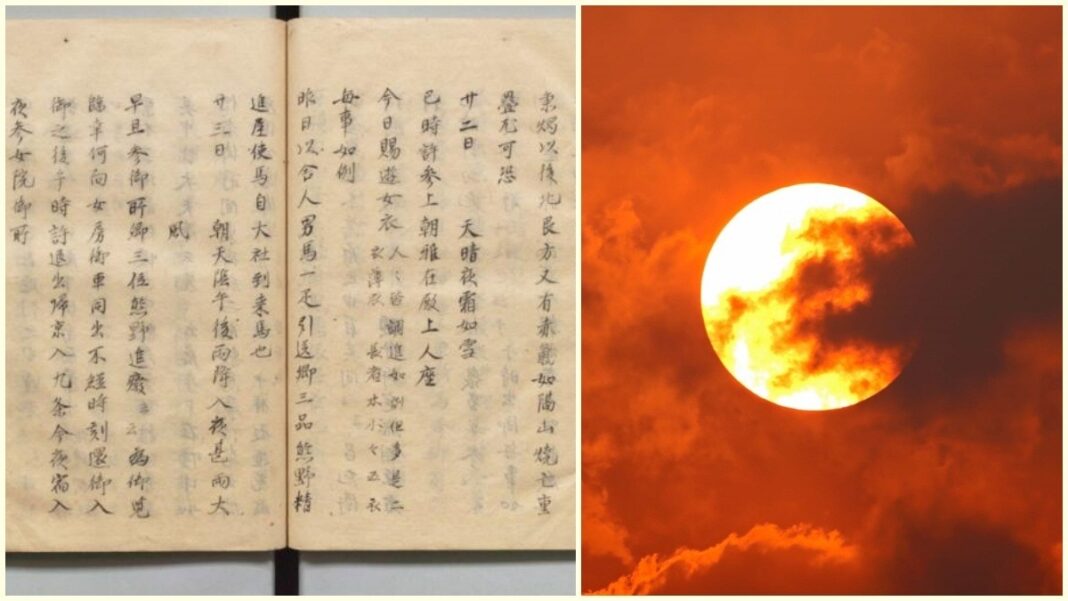 秉燭以後北艮方又有赤氣如隔山燒亡重
疊尤可恐
廿二日 天晴夜霜如雪
已時許参上朝雅在殿上人座
今日賜遊女衣 人々皆調進如例但多是二
衣薄衣 長者木小々五衣
毎事如例
昨日以舎人男馬一疋引送卿三品熊野精
進屋使馬自大社到来馬也
廿三日 朝天陰午後雨降入夜甚雨大
風
早旦参御所卿三位熊野進發云々為御覧
臨幸何向女房御車同出不經時刻還御入
御之後午時許退出帰京入九条今夜宿入
夜参女院御所